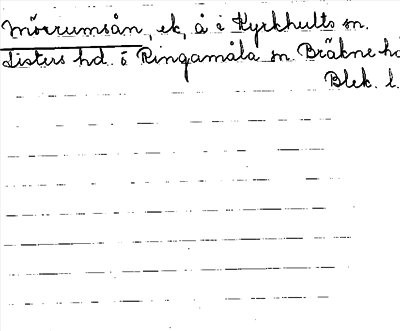 Mörrumsån, ek, å i Kyrkhults sn.
Listers hd. o Ringamåla sn Bräkne hd
Blek. l.